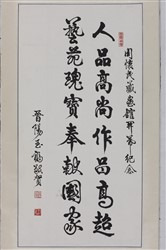 周懷民藏畫館開幕紀念
人品高尚作品高超
藝苑瑰寶奉獻國家
晉陽玉鶴敬賀